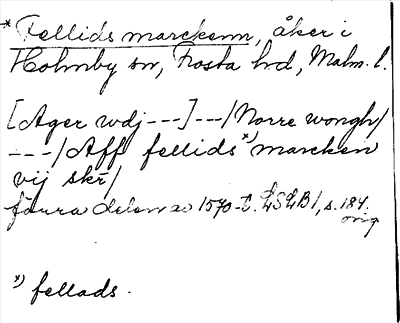 * Fellids marckenn, åker i
Holmby sn, Frosta hd, Malm. l.
[Ager wdj ---] ---/Norre wongh/
---/Aff fellids x) marcken
vij skr/
förra delen av 1570-t. LSLB1, s. 184.
orig
x) fellads.